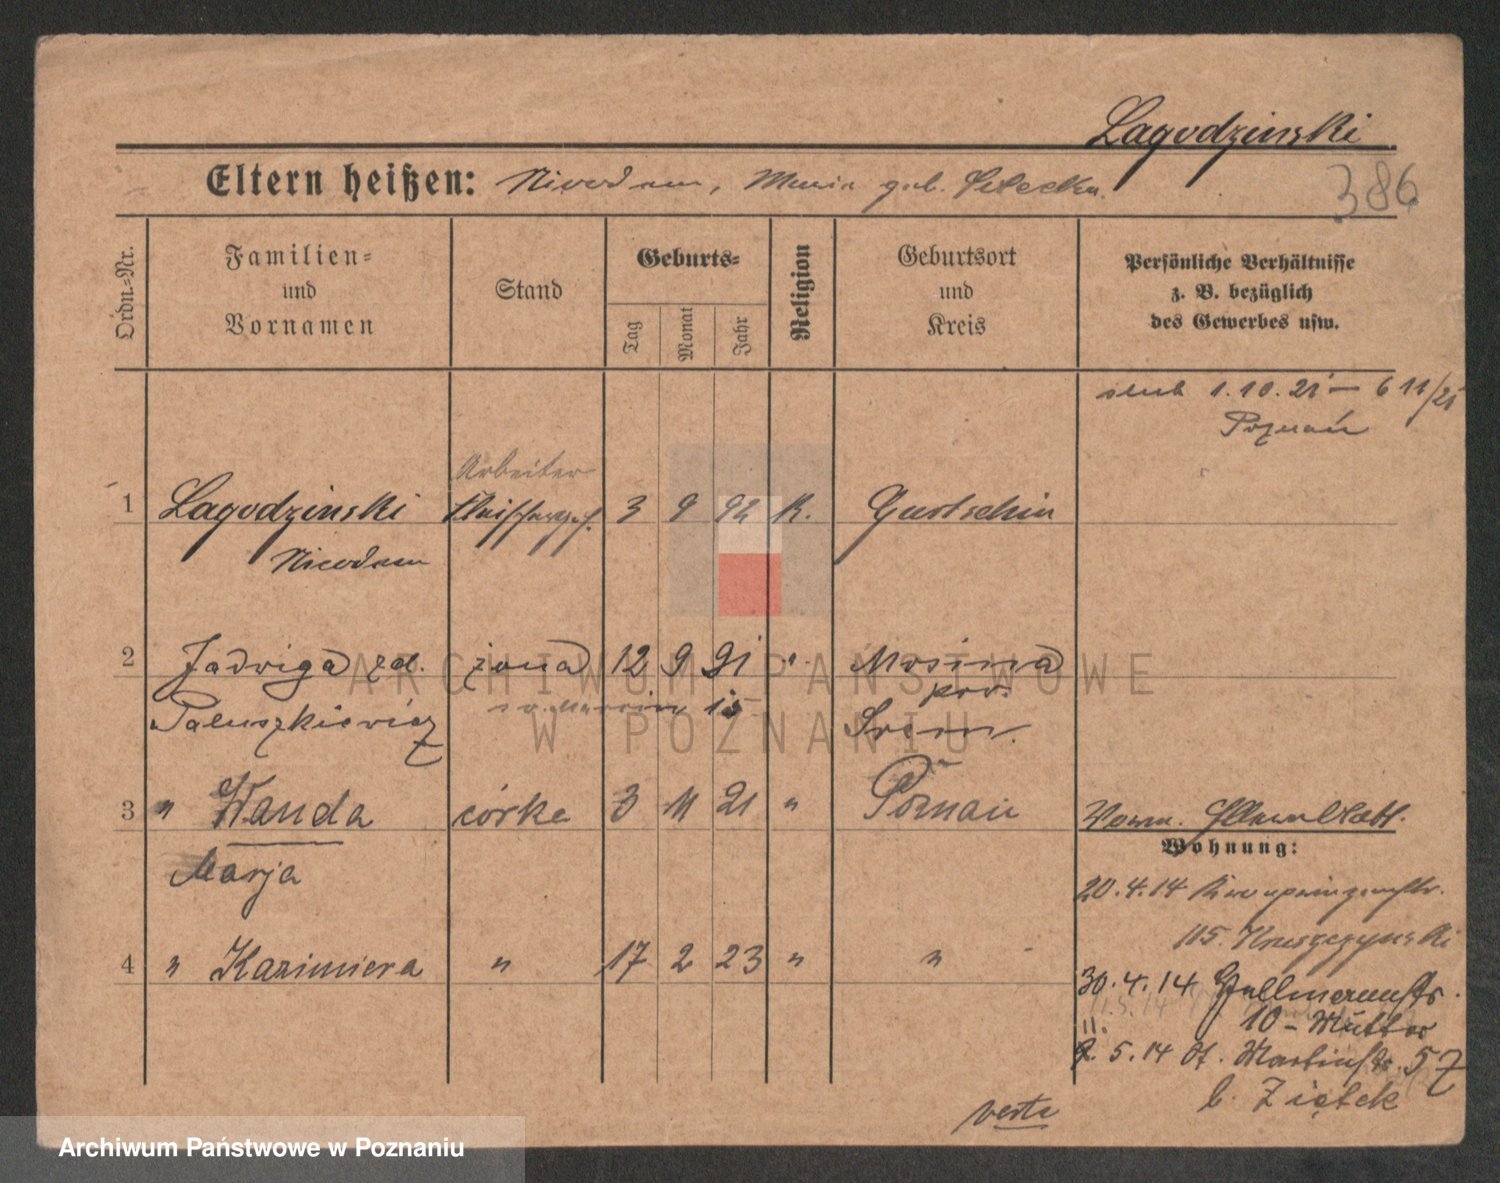 Lagodzinski
386
Eltern heißen: Nicodem, Maria geb.
Ordn.-Nr.
Familien-
und
Vornamen
Stand
Geburts-
Tag
Monat
Jahr
Religion
Geburtsort
und
Kreis
Persönliche Verhältnisse
z. B. bezüglich
des Gewerbes usw.
ślub 1.10.21 — 6 11/21
Poznań
Arbeiter
1 Lagodzinski 3 9 92 K. Gurtschin
Nicodem
2 Jadwiga zd. żona 12 9 91 " Mosina
pow.
Paluszkiewicz Śrem.
3 " Wanda córka 3 11 21 " Poznań
Marja
Wohnung:
20.4.14 Kronprinzenstr.
115. Kruszczynski
4 " Kazimiera " 17 2 23 " "
30.4.14
10 - Mutter
11.
5.14 St. Martinstr. 57
b. Ziętek
verte
ARCHIWUM PAŃSTWOWE
W POZNANIU
Archiwum Państwowe w Poznaniu